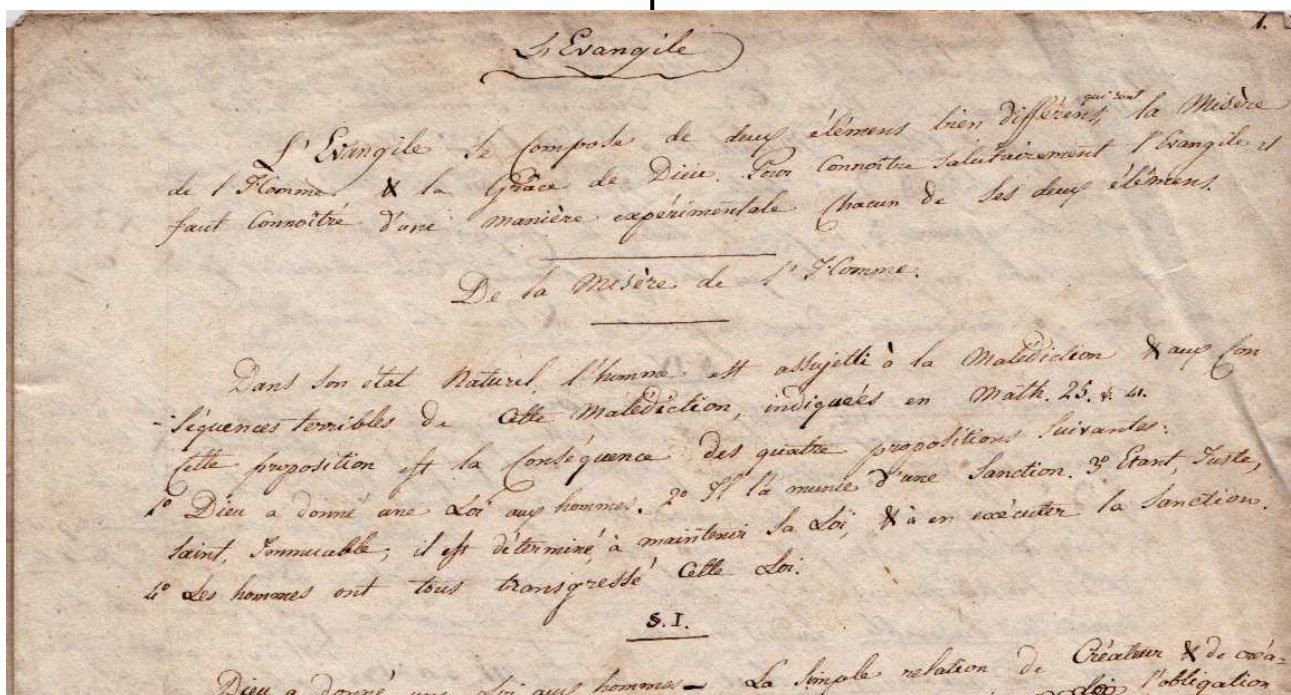 1.
L'Evangile
L'Evangile se compose de deux élémens bien différens, qui sont la Misère
de l'Homme & la Grâce de Dieu. Pour connoître salutairement l'Evangile il
faut connoître d'une manière expérimentale chacun de ses deux élémens.
De la Misère de l'Homme.
Dans son état Naturel, l'homme est assujetti à la Malédiction & aux Con
-séquences terribles de cette Malédiction, indiquées en Math. 25. v. 41.
Cette proposition est la Conséquence des quatre propositions suivantes:
1º Dieu a donné une Loi aux hommes. 2º Il l'a munie d'une Sanction. 3º Etant, Juste,
Saint, Immuable, il est déterminé, à maintenir sa Loi, & à en exécuter la Sanction.
4º Les hommes ont tous transgressé cette Loi.
S. I.
Dieu a donné une Loi aux hommes - La simple relation de Créateur & de créa-
Loi l'obligation